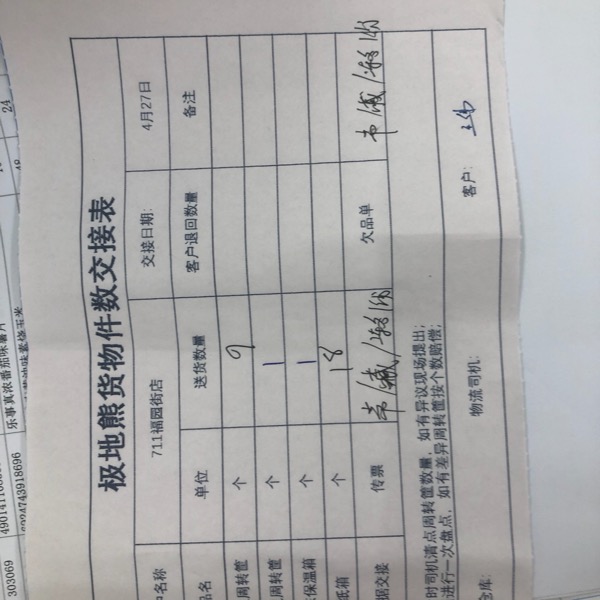 极地熊货物件数交接表
中名称 711福园街店 交接日期: 4月27日
品名 单位 送货数量 客户退回数量 备注
周转筐 个 9
周转筐 个 1
保温箱 个 1
纸箱 个 18
据交接 传票 欠品单
时司机清点周转筐数量, 如有异议现场提出;
进行一次盘点, 如有差异周转筐按个数赔偿;
仓库: 物流司机: 客户:
303069 4901411 乐事真浓番茄味薯片 24
6924743918696